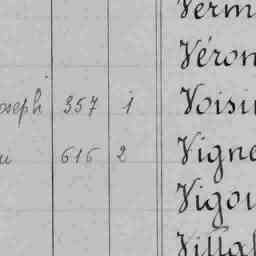 Verm
Véron
oseph 357 1 Voisi
u 616 2 Vigne
Vigou
Villa